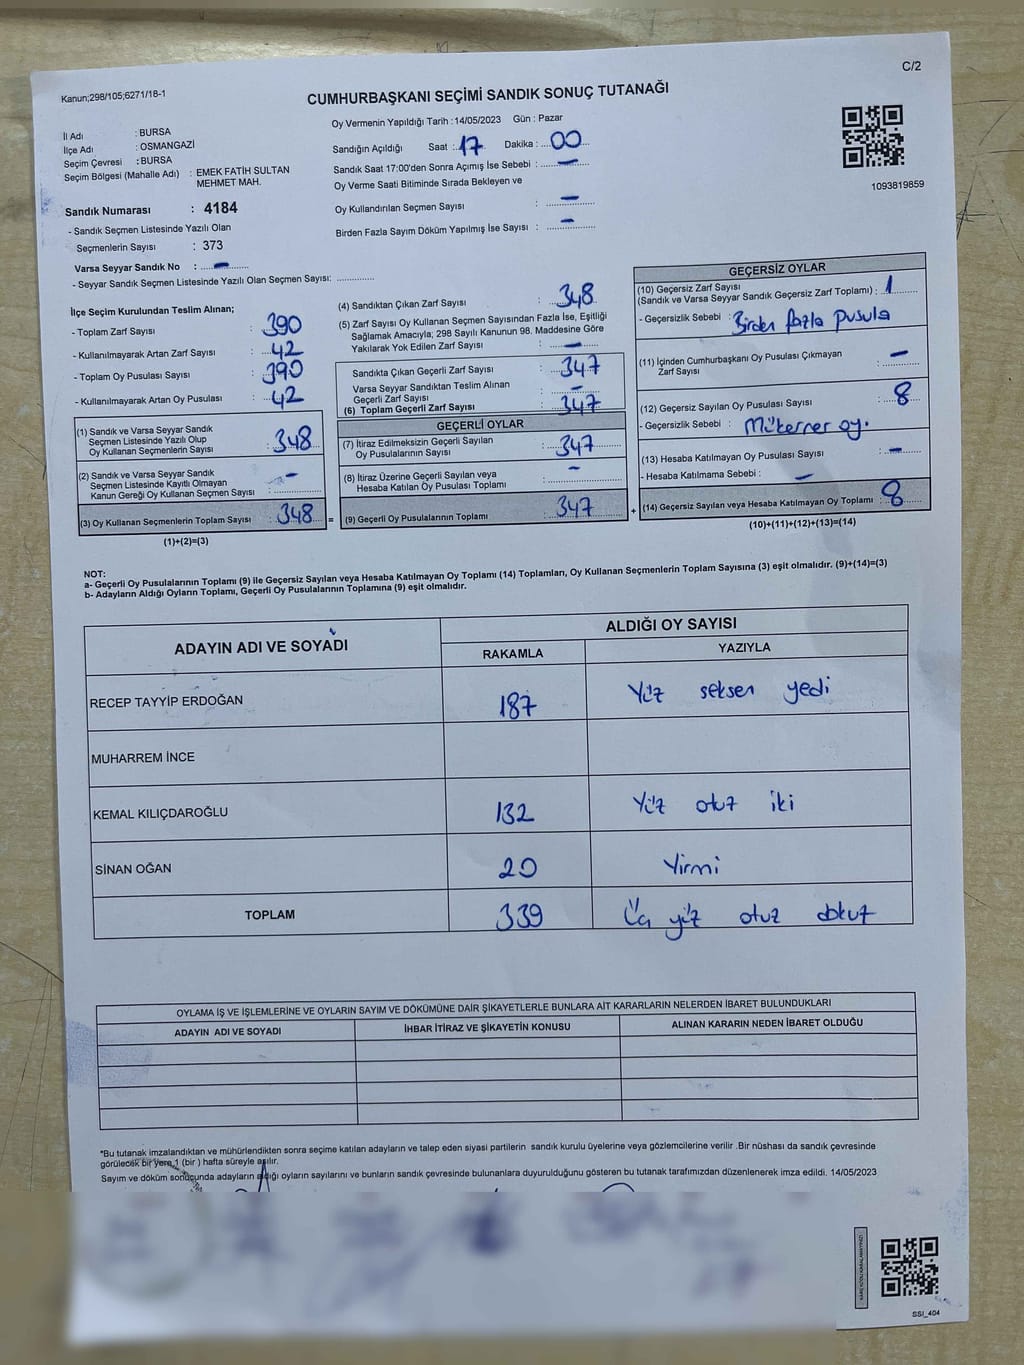 C/2
Kanun;298/105;6271/18-1
CUMHURBAŞKANI SEÇİMİ SANDIK SONUÇ TUTANAĞI
İl Adı : BURSA
İlçe Adı : OSMANGAZİ
Seçim Çevresi : BURSA
Seçim Bölgesi (Mahalle Adı) : EMEK FATİH SULTAN
MEHMET MAH.
Sandık Numarası : 4184
- Sandık Seçmen Listesinde Yazılı Olan
Seçmenlerin Sayısı : 373
Varsa Seyyar Sandık No : -
- Seyyar Sandık Seçmen Listesinde Yazılı Olan Seçmen Sayısı: ............
Oy Vermenin Yapıldığı Tarih : 14/05/2023 Gün : Pazar
Sandığın Açıldığı Saat : 17 Dakika : 00
Sandık Saat 17:00'den Sonra Açımış İse Sebebi : -
Oy Verme Saati Bitiminde Sırada Bekleyen ve
Oy Kullandırılan Seçmen Sayısı : -
Birden Fazla Sayım Döküm Yapılmış İse Sayısı : -
1093819859
İlçe Seçim Kurulundan Teslim Alınan;
- Toplam Zarf Sayısı : 390
- Kullanılmayarak Artan Zarf Sayısı : 42
- Toplam Oy Pusulası Sayısı : 390
- Kullanılmayarak Artan Oy Pusulası : 42
(1) Sandık ve Varsa Seyyar Sandık
Seçmen Listesinde Yazılı Olup
Oy Kullanan Seçmenlerin Sayısı : 348
(2) Sandık ve Varsa Seyyar Sandık
Seçmen Listesinde Kayıtlı Olmayan
Kanun Gereği Oy Kullanan Seçmen Sayısı : -
(3) Oy Kullanan Seçmenlerin Toplam Sayısı : 348 =
(1)+(2)=(3)
(4) Sandıktan Çıkan Zarf Sayısı : 348
(5) Zarf Sayısı Oy Kullanan Seçmen Sayısından Fazla İse, Eşitliği
Sağlamak Amacıyla; 298 Sayılı Kanunun 98. Maddesine Göre
Yakılarak Yok Edilen Zarf Sayısı : -
Sandıkta Çıkan Geçerli Zarf Sayısı : 347
Varsa Seyyar Sandıktan Teslim Alınan
Geçerli Zarf Sayısı : -
(6) Toplam Geçerli Zarf Sayısı : 347
GEÇERLİ OYLAR
(7) İtiraz Edilmeksizin Geçerli Sayılan
Oy Pusulalarının Sayısı : 347
(8) İtiraz Üzerine Geçerli Sayılan veya
Hesaba Katılan Oy Pusulası Toplamı : -
(9) Geçerli Oy Pusulalarının Toplamı : 347 +
GEÇERSİZ OYLAR
(10) Geçersiz Zarf Sayısı
(Sandık ve Varsa Seyyar Sandık Geçersiz Zarf Toplamı) : 1
- Geçersizlik Sebebi : Birden fazla pusula
(11) İçinden Cumhurbaşkanı Oy Pusulası Çıkmayan
Zarf Sayısı : -
(12) Geçersiz Sayılan Oy Pusulası Sayısı : 8
- Geçersizlik Sebebi : Mükerrer oy.
(13) Hesaba Katılmayan Oy Pusulası Sayısı : -
- Hesaba Katılmama Sebebi : -
(14) Geçersiz Sayılan veya Hesaba Katılmayan Oy Toplamı : 8
(10)+(11)+(12)+(13)=(14)
NOT:
a- Geçerli Oy Pusulalarının Toplamı (9) ile Geçersiz Sayılan veya Hesaba Katılmayan Oy Toplamı (14) Toplamları, Oy Kullanan Seçmenlerin Toplam Sayısına (3) eşit olmalıdır. (9)+(14)=(3)
b- Adayların Aldığı Oyların Toplamı, Geçerli Oy Pusulalarının Toplamına (9) eşit olmalıdır.
ADAYIN ADI VE SOYADI ALDIĞI OY SAYISI
RAKAMLA YAZIYLA
RECEP TAYYİP ERDOĞAN 187 Yüz seksen yedi
MUHARREM İNCE
KEMAL KILIÇDAROĞLU 132 Yüz otuz iki
SİNAN OĞAN 20 Yirmi
TOPLAM 339 Üç yüz otuz dokuz
OYLAMA İŞ VE İŞLEMLERİNE VE OYLARIN SAYIM VE DÖKÜMÜNE DAİR ŞİKAYETLERLE BUNLARA AİT KARARLARIN NELERDEN İBARET BULUNDUKLARI
ADAYIN ADI VE SOYADI İHBAR İTİRAZ VE ŞİKAYETİN KONUSU ALINAN KARARIN NEDEN İBARET OLDUĞU
*Bu tutanak imzalandıktan ve mühürlendikten sonra seçime katılan adayların ve talep eden siyasi partilerin sandık kurulu üyelerine veya gözlemcilerine verilir .Bir nüshası da sandık çevresinde
görülecek bir yere 1 (bir ) hafta süreyle asılır.
Sayım ve döküm sonucunda adayların aldığı oyların sayılarını ve bunların sandık çevresinde bulunanlara duyurulduğunu gösteren bu tutanak tarafımızdan düzenlenerek imza edildi. 14/05/2023
KARE KODU KARALAMAYINIZ!
SSI_404